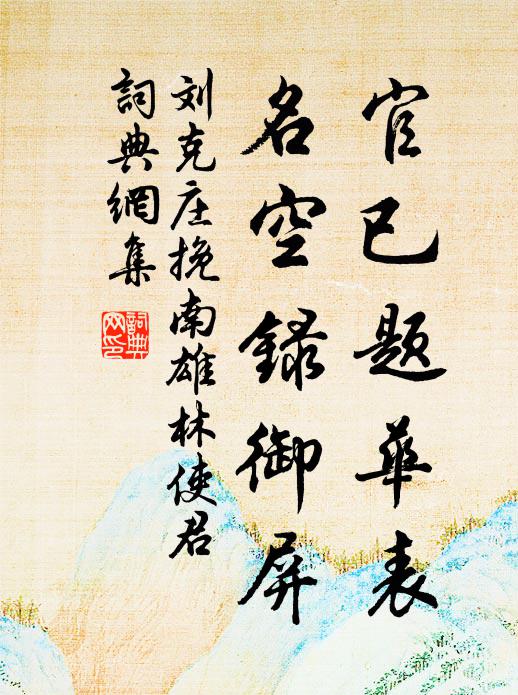 官已题华表
名空録御屏
刘克庄挽南雄林使君
詞典網集
詞典網印